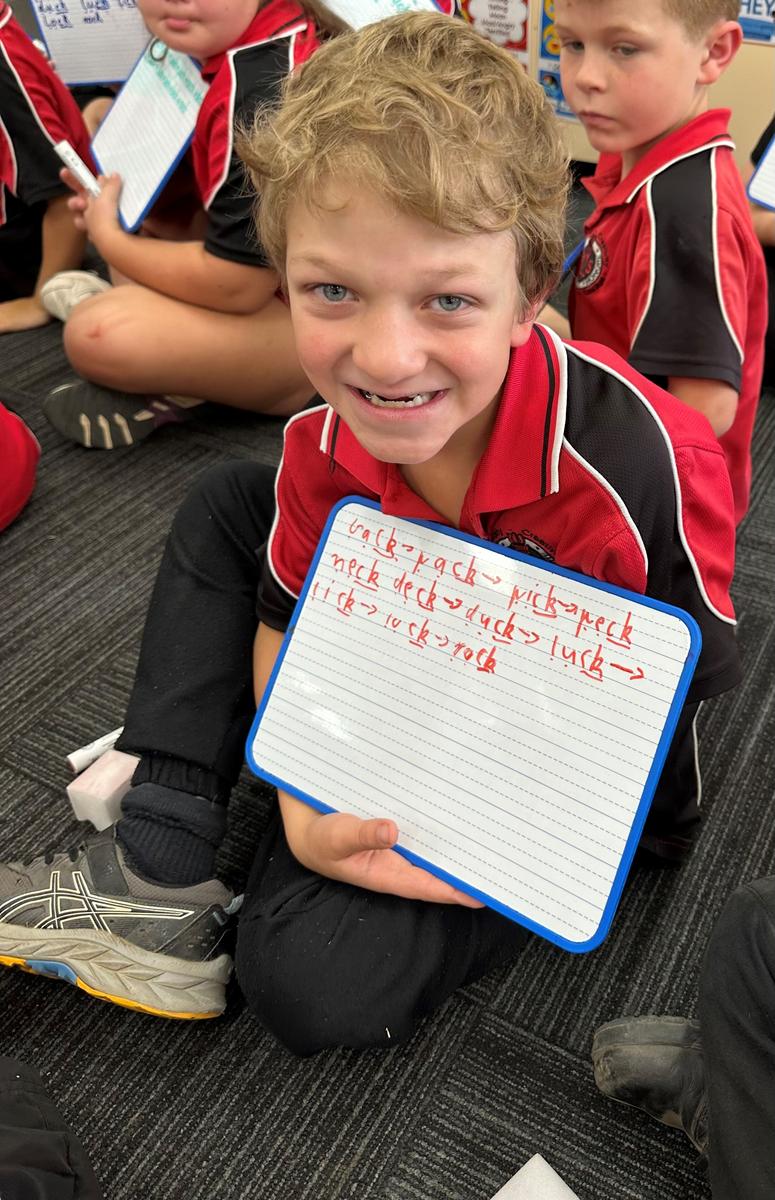 duck luck
lock
THEY
back→ pack→ pick→ peck
neck deck→ duck→ luck→
lick→ lock→ rock